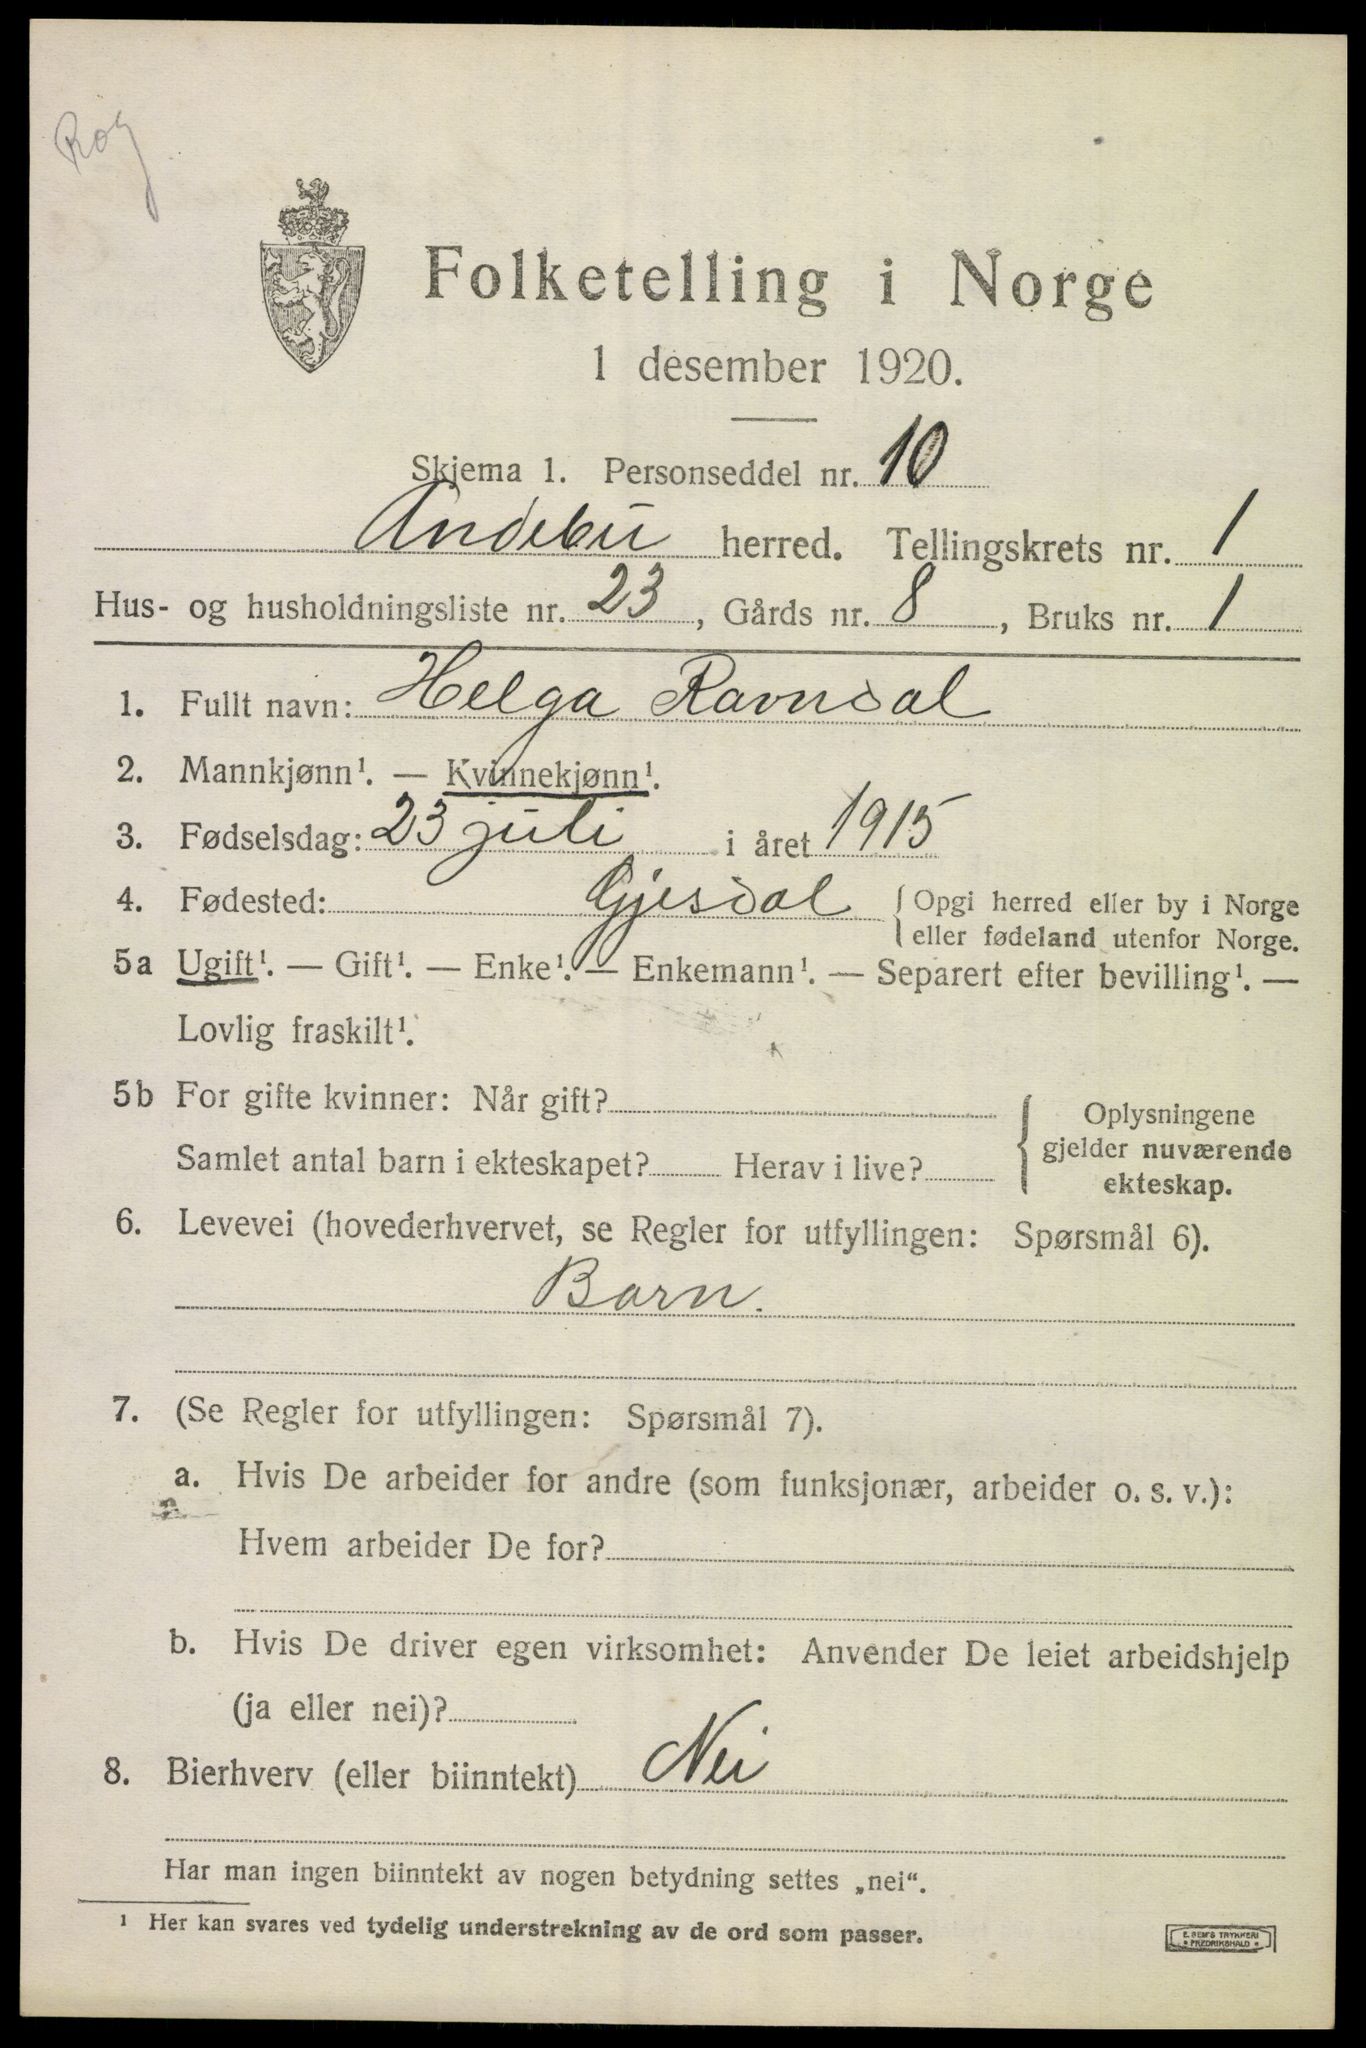 Rog
Folketelling i Norge
1 desember 1920.
Skjema 1. Personseddel nr. 10
Andebu herred. Tellingskrets nr. 1
Hus- og husholdningsliste nr. 23, Gårds nr. 8, Bruks nr. 1
1. Fullt navn: Helga Ravndal
2. Mannkjønn¹. — Kvinnekjønn¹.
3. Fødselsdag: 23 juli i året 1915
4. Fødested: Gjesdal { Opgi herred eller by i Norge
eller fødeland utenfor Norge.
5a Ugift¹. — Gift¹. — Enke¹. — Enkemann¹. — Separert efter bevilling¹. —
Lovlig fraskilt¹.
5b For gifte kvinner: Når gift?
Samlet antal barn i ekteskapet? Herav i live?
{ Oplysningene
gjelder nuværende
ekteskap.
6. Levevei (hovederhvervet, se Regler for utfyllingen: Spørsmål 6).
Barn.
7. (Se Regler for utfyllingen: Spørsmål 7).
a. Hvis De arbeider for andre (som funksjonær, arbeider o. s. v.):
Hvem arbeider De for?
b. Hvis De driver egen virksomhet: Anvender De leiet arbeidshjelp
(ja eller nei)?
8. Bierhverv (eller biinntekt) Nei
Har man ingen biinntekt av nogen betydning settes „nei“.
¹ Her kan svares ved tydelig understrekning av de ord som passer.
E. SEM'S TRYKKERI
• FREDRIKSHALD •